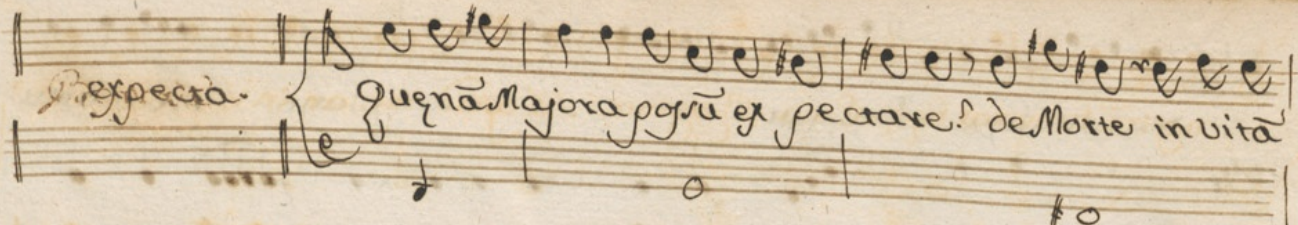 expecta. Quęnā Majora possū ex pectare? de Morte in vitā